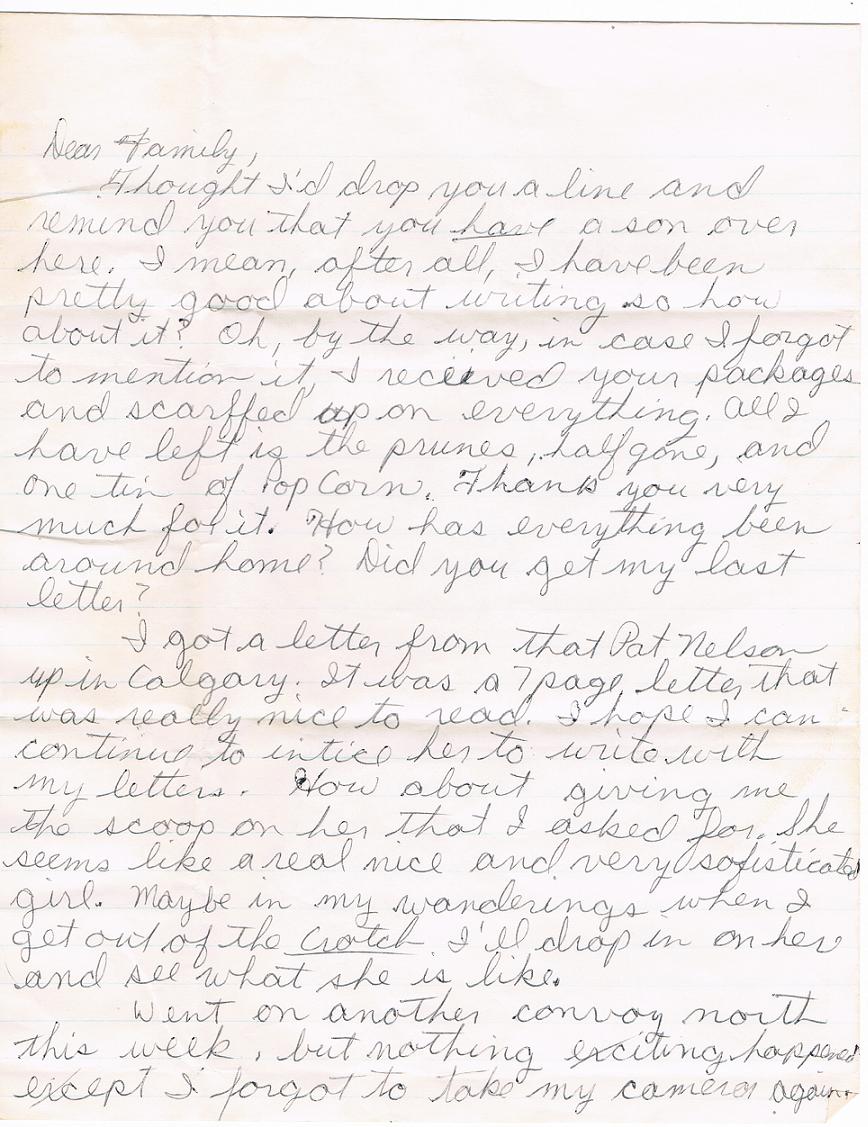 Dear Family,
Thought I'd drop you a line and
remind you that you have a son over
here. I mean, after all, I have been
pretty good about writing so how
about it? Oh, by the way, in case I forgot
to mention it, I receieved your packages
and scarffed up on everything. All I
have left is the prunes, half gone, and
one tin of Pop Corn. Thank you very
much for it. How has everything been
around home? Did you get my last
letter?
I got a letter from that Pat Nelson
up in Calgary. It was a 7 page letter that
was really nice to read. I hope I can
continue to intice her to write with
my letters. How about giving me
the scoop on her that I asked for. She
seems like a real nice and very sofisticated
girl. Maybe in my wanderings when I
get out of the Crotch I'll drop in on her
and see what she is like.
Went on another convoy north
this week, but nothing exciting happened
except I forgot to take my camera again.